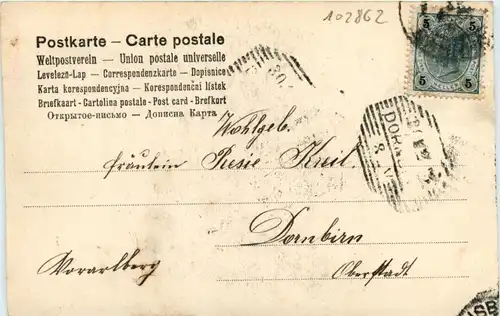 102862
Postkarte – Carte postale
Weltpostverein – Union postale universelle
Levelezö-Lap – Correspondenzkarte – Dopisnice
Karta korespondencyjna – Korespondenční lístek
Briefkaart - Cartolina postale - Post card - Brefkort
Открытое-письмо – Дописна Карта
5 5
5 5
30
DORN
8
Wohlgeb.
Fräulein Resie Kreil
Dornbirn
Vorarlberg
Oberstadt